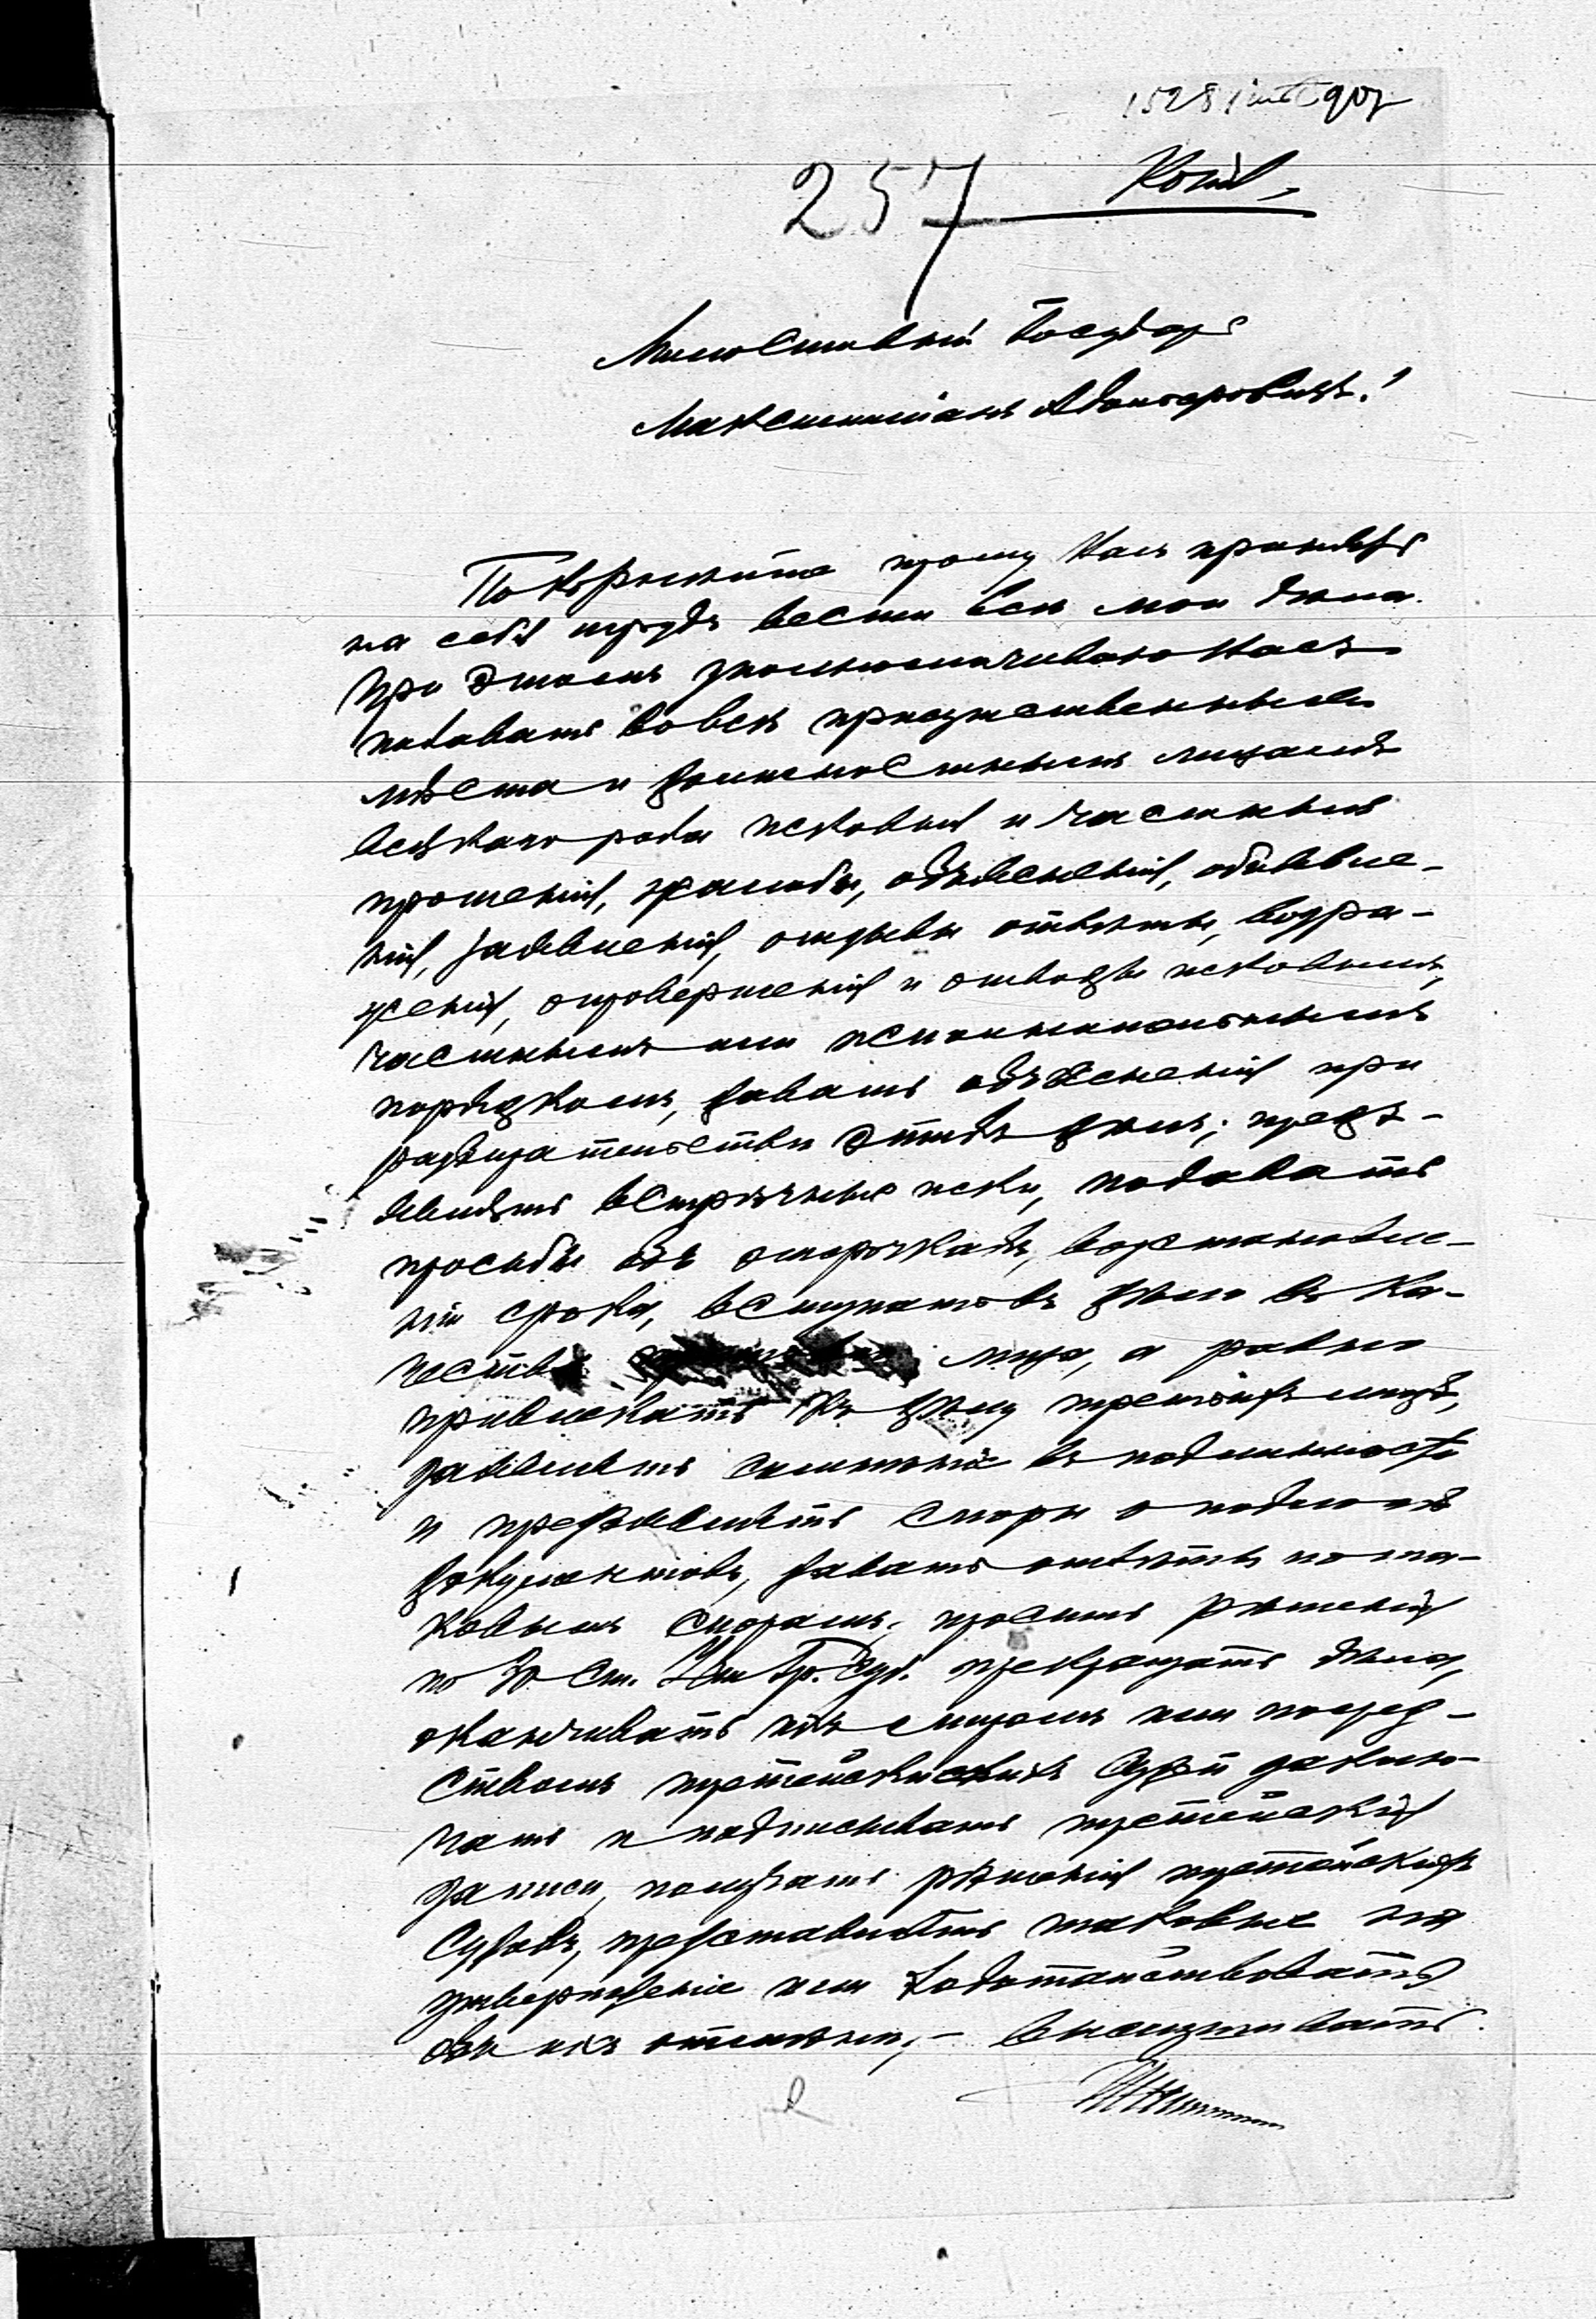 907
257 Копія
Милостивый Государь
Максимиліанъ Адольфовичъ!
Покорнѣйше прошу Васъ принять
на себя трудъ вести всѣ мои дѣла.
При этомъ уполномачиваю Васъ
подавать во всѣ присутственныя
мѣста и должностнымъ лицамъ
всякаго рода исковыя и частныя
прошенія, жалобы, объясненія, объявле-
нія, заявленія, отзывы отвѣты, возра-
женія, опроверженія и отводы исковымъ,
частнымъ или исполнительнымъ
порядкомъ, давать объясненія при
разбирательствѣ этихъ дѣлъ; предъ-
являть встрѣчные иски, подавать
просьбы объ отсрочкахъ, возстановле-
ніи срока, вступать въ дѣло въ ка-
чествѣ лица, а равно
привлекать къ дѣлу третьихъ лицъ,
заявлять сомнѣніе въ подлинности
и предъявлять споры о подлогѣ
документовъ, давать отвѣты по та-
ковымъ спорамъ; просить рѣшенія
по ст. Уст. Гр. Суд. прекращать дѣла,
оканчивать ихъ миромъ или посред-
ствомъ третейскихъ судей заклю-
чать и подписывать третейскія
записи, получать рѣшенія третейскихъ
Судовъ, представлять таковыя на
утвержденіе или ходатайствовать
объ ихъ отмѣнѣ; -